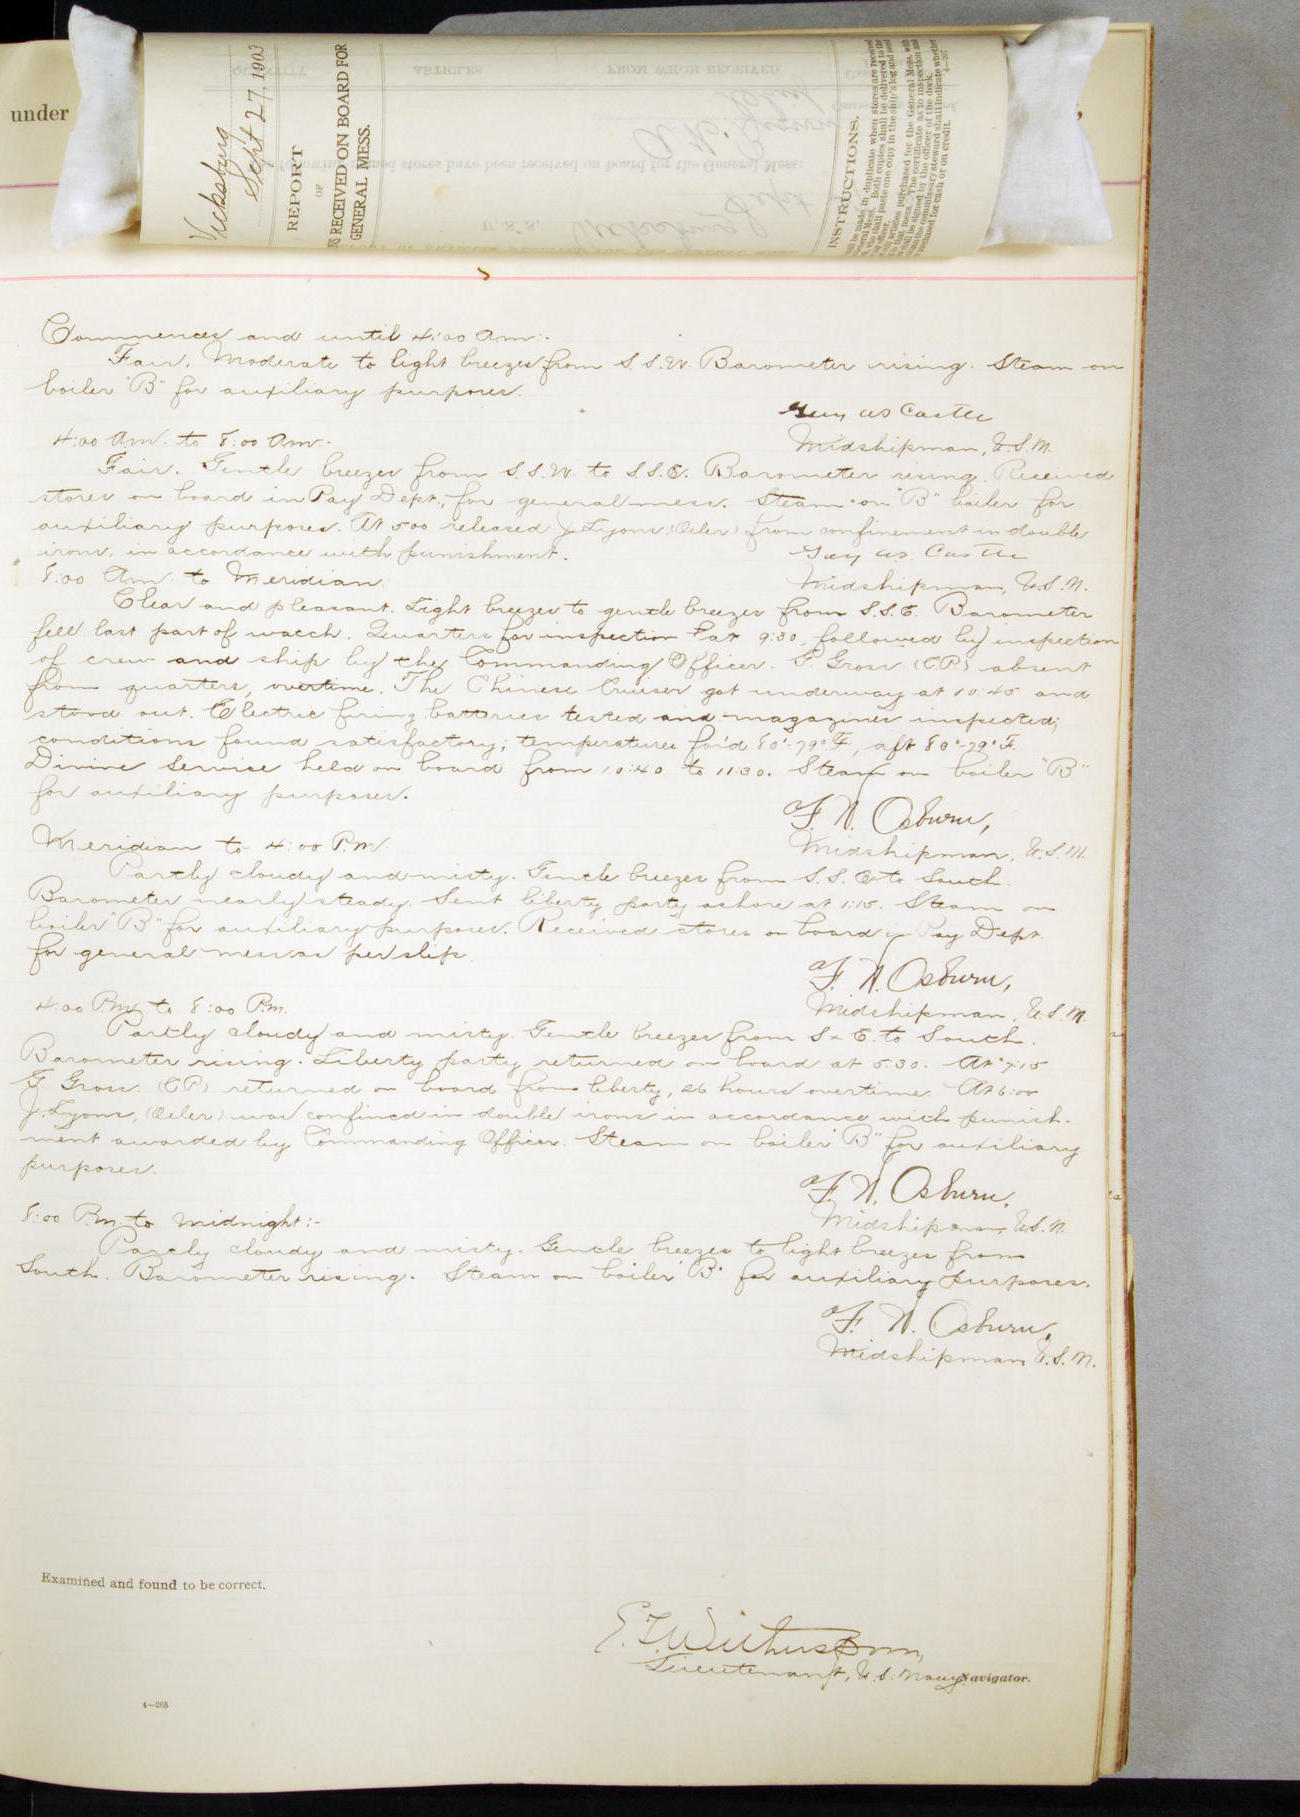 under
Vicksburg
Sept 27, 1903
REPORT
OF
RECEIVED ON BOARD FOR
GENERAL MESS.
INSTRUCTIONS.
be made in duplicate when stores are received
Both copies shall be delivered to the
shall paste one copy in the ship's log and send
purchased for the General Mess, with
that mess. The certificate as to inspection and
shall be signed by the officer of the deck.
the commissary steward shall indicate whether
for cash or on credit.
Commences and until 4:00 Am:-
Fair. Moderate to light breezes from S.S.W. Barometer rising. Steam on
boiler "B" for auxiliary purposes.
Guy W S Castle
Midshipman, U.S.N.
4:00 Am. to 8:00 Am:-
Fair. Gentle breezes from S.S.W. to S.S.E. Barometer rising. Received
stores on board in Pay Dept., for general mess. Steam on "B" boiler for
auxiliary purposes. At 5:00 released J. Lyons (Oiler) from confinement in double
irons, in accordance with punishment.
Guy W S. Castle
Midshipman, U.S.N.
8:00 Am. to Meridian.
Clear and pleasant. Light breezes to gentle breezes from S.S.E. Barometer
fell last part of watch. Quarters for inspection at 9:30, followed by inspection
of crew and ship by the Commanding Officer. F. Gross (C.P.) absent
from quarters, overtime. The Chinese Cruiser got underway at 10:45 and
stood out. Electric firing batteries tested and magazines inspected;
conditions found satisfactory; temperatures for'd 80°-79° F, aft 80°-79° F.
Divine Service held on board from 10:40 to 11:30. Steam on boiler "B"
for auxiliary purposes.
F. N. Osburn,
Midshipman, U.S.N.
Meridian to 4:00 P.M.
Partly cloudy and misty. Gentle breezes from S.S.E. to South.
Barometer nearly steady. Sent liberty party ashore at 1:15. Steam on
boiler "B" for auxiliary purposes. Received stores on board in Pay Dept.
for general mess as per slip.
F. N. Osburn,
Midshipman, U.S.N.
4:00 P.M. to 8:00 P.m.
Partly cloudy and misty. Gentle breezes from S x E. to South.
Barometer rising. Liberty party returned on board at 5:30. At 7:15
F. Gross (CP) returned on board from liberty, 26 hours overtime. At 6:00
J. Lyons, (Oiler) was confined in double irons in accordance with punish-
ment awarded by Commanding Officer. Steam on boiler "B" for auxiliary
purposes.
F. N. Osburn,
Midshipman, U.S.N.
8:00 P.m. to Midnight:-
Partly cloudy and misty. Gentle breezes to light breezes from
South. Barometer rising. Steam on boiler "B" for auxiliary purposes.
F. N. Osburn,
Midshipman, U.S.N.
Examined and found to be correct.
E. T. Witherspoon,
Lieutenant, U.S. Navy Navigator.
4—265